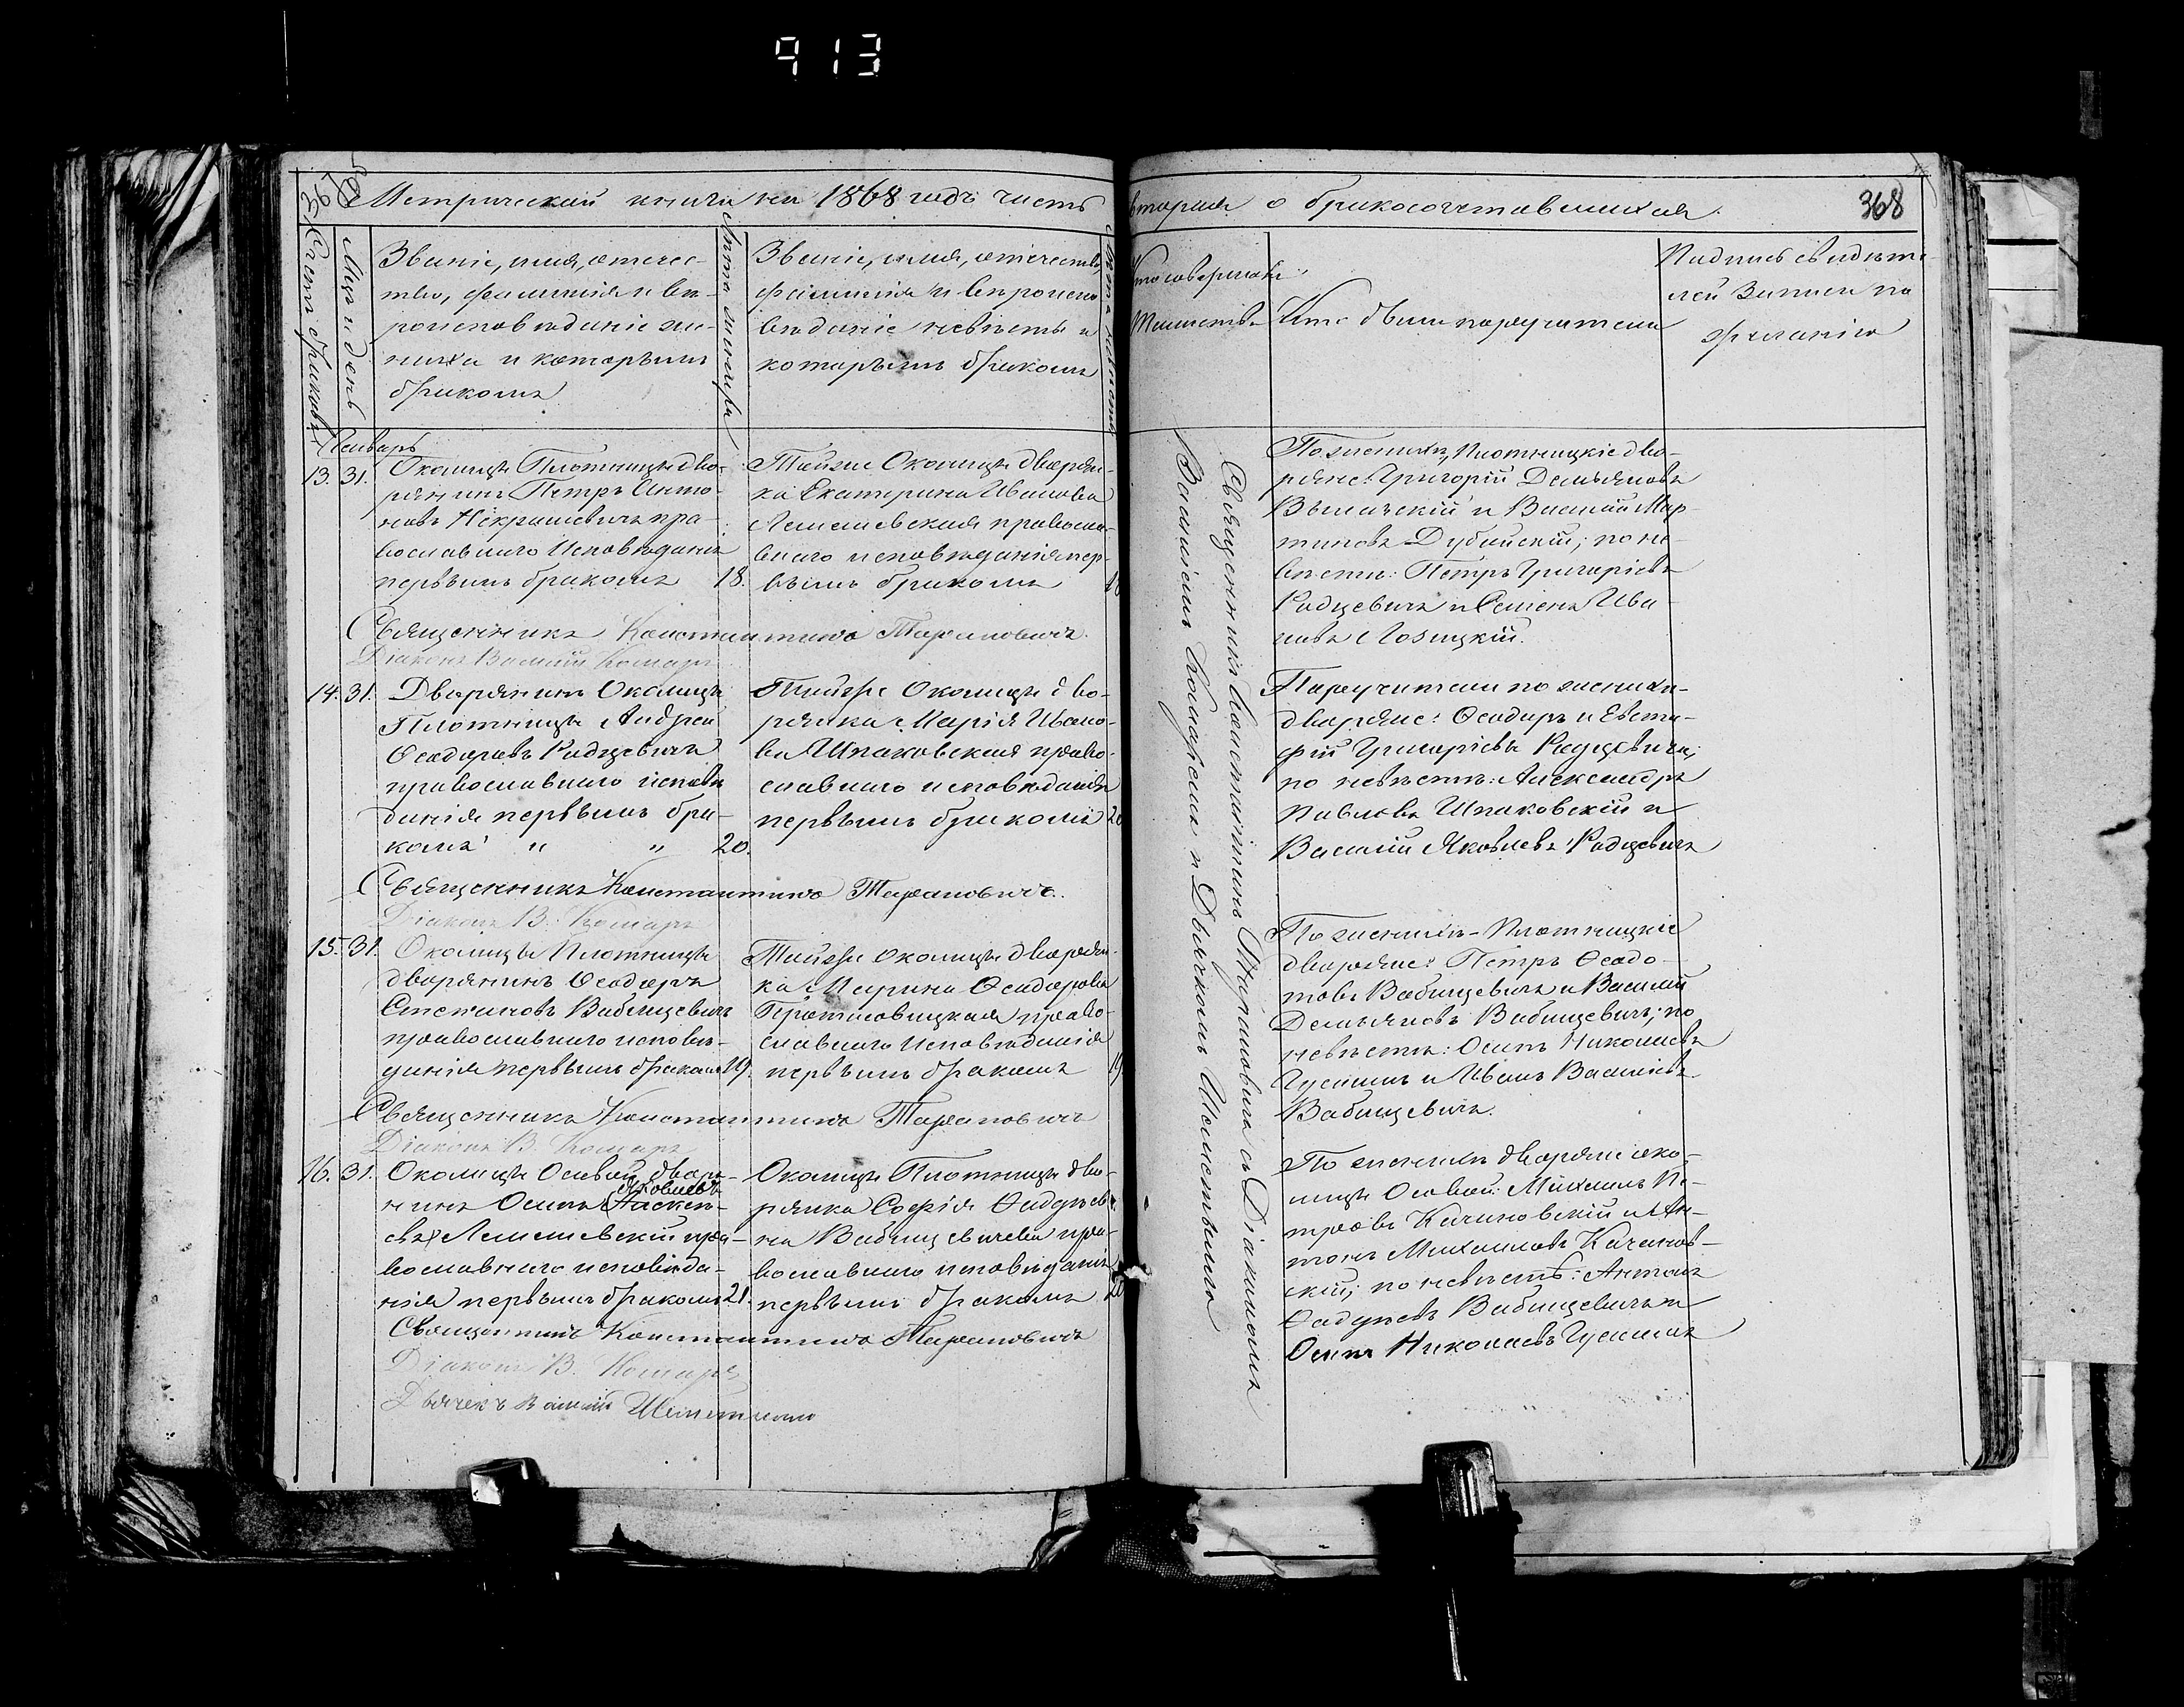 913
Метрической книги на 1868 годъ часть вторая о бракосочетавшихся.
368
Счетъ браковъ
Мѣц. и день
Званіе, имя, отечес-
тво, фамилія и вѣ-
роисповѣданіе же-
ниха и которымъ
бракомъ
Лѣта жениха
Званіе, имя, отечество,
фамилія и вѣроиспо
вѣданіе невѣсты и
которымъ бракомъ
Лѣта невѣсты
Кто совершалъ
таинство
Кто были поручители
Подпись свидѣте-
лей записи по
желанію
Январь
13. 31. Околицы Плотницы дво-
рянинъ Петръ Анто-
новъ Некрашевичъ пра-
вославнаго исповѣданія
первымъ бракомъ 18.
Тойже Околицы дворян-
ка Екатерина Иванова
Лемешевская правосла-
внаго исповѣданія пер-
вымъ бракомъ 18
По женихѣ, Плотницкіе дво-
ряне: Григорій Демьяновъ
и Василій Мар-
тиновъ Дубойскій; по не-
вѣстѣ: Петръ Григорьевъ
Родцевичъ и Семенъ Ива-
новъ Лозицкій.
Священникъ Константинъ Тарановичъ.
Діаконъ Василій Комаръ
14. 31. Дворянинъ Околицы
Плотницы Андрей
Ѳеодоровъ Родцевичъ
православнаго исповѣ
данія первымъ бра-
комъ " " 20.
Тойже Околицы дво-
рянка Марія Ивано-
ва Шпаковская право-
славнаго исповѣданія
первымъ бракомъ 20
Поручители по женихѣ-
дворяне: Ѳеодоръ и Евста-
фій Григорьевы Родцевичи;
по невѣстѣ: Александръ
Павловъ Шпаковскій и
Василій Яковлевъ Родцевичъ
Священникъ Константинъ Тарановичъ.
Діаконъ В. Комаръ
15. 31. Околицы Плотницы
дворянинъ Ѳеодоръ
Степановъ Вабищевичъ
православнаго исповѣ-
данія первымъ бракомъ 19.
Тойже околицы дворян-
ка Марина Ѳеодорова
Протасовицкая право-
славнаго исповѣданія
первымъ бракомъ 19
По женихѣ-Плотницкіе
дворяне: Петръ Ѳеодо-
товъ Вабищевичъ и Василій
Демьяновъ Вабищевичъ; по
невѣстѣ: Осипъ Николаевъ
Гусаимъ и Иванъ Василіевъ
Вабищевичъ.
Священникъ Константинъ Тарановичъ
Діаконъ В. Комаръ
16. 31. Околицы Осовой дворя-
Яковлевъ
нинъ Осипъ
Лемешевскій пра-
вославнаго исповѣда-
нія первымъ бракомъ 21.
Околицы Плотницы дво-
рянка Софія Ѳадѣев-
на Вабищевичева пра-
вославнаго исповѣданія
первымъ бракомъ 20
По женихѣ дворяне око-
лицы Осовой: Михаилъ Пе-
тровъ Качановскій и Ан-
тонъ Михаиловъ Качанов-
скій; по невѣстѣ: Антонъ
Ѳадѣевъ Вабищевичъ и
Осипъ Николаевъ Гусаимъ
Священникъ Константинъ Тарановичъ
Діаконъ В. Комаръ
Дьячекъ Василій
Священникъ Константинъ Тарановичъ съ Діакономъ
Василіемъ Комаромъ и Дьячкомъ